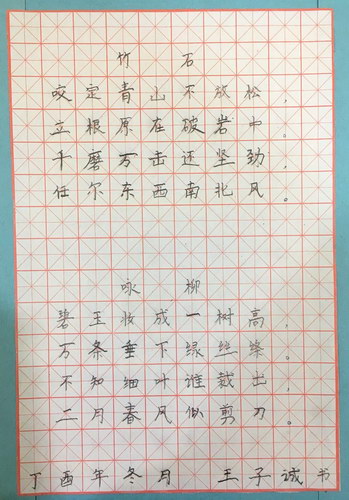 竹 石
咬定青山不放松，
立根原在破岩中。
千磨万击还坚劲，
任尔东西南北风。
咏 柳
碧玉妆成一树高，
万条垂下绿丝绦。
不知细叶谁裁出，
二月春风似剪刀。
丁酉年冬月 王子诚书